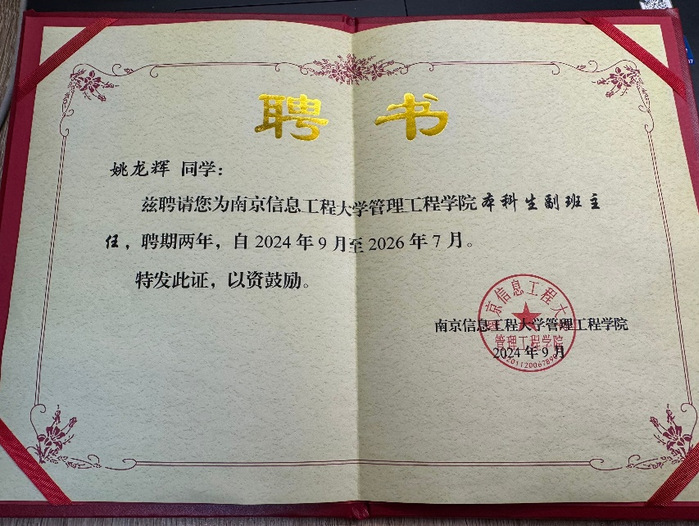 聘书
姚龙辉 同学：
兹聘请您为南京信息工程大学管理工程学院本科生副班主
任，聘期两年，自 2024 年 9 月至 2026 年 7 月。
特发此证，以资鼓励。
南京信息工程大学管理工程学院
2024 年 9 月
南京信息工程大
管理工程学院